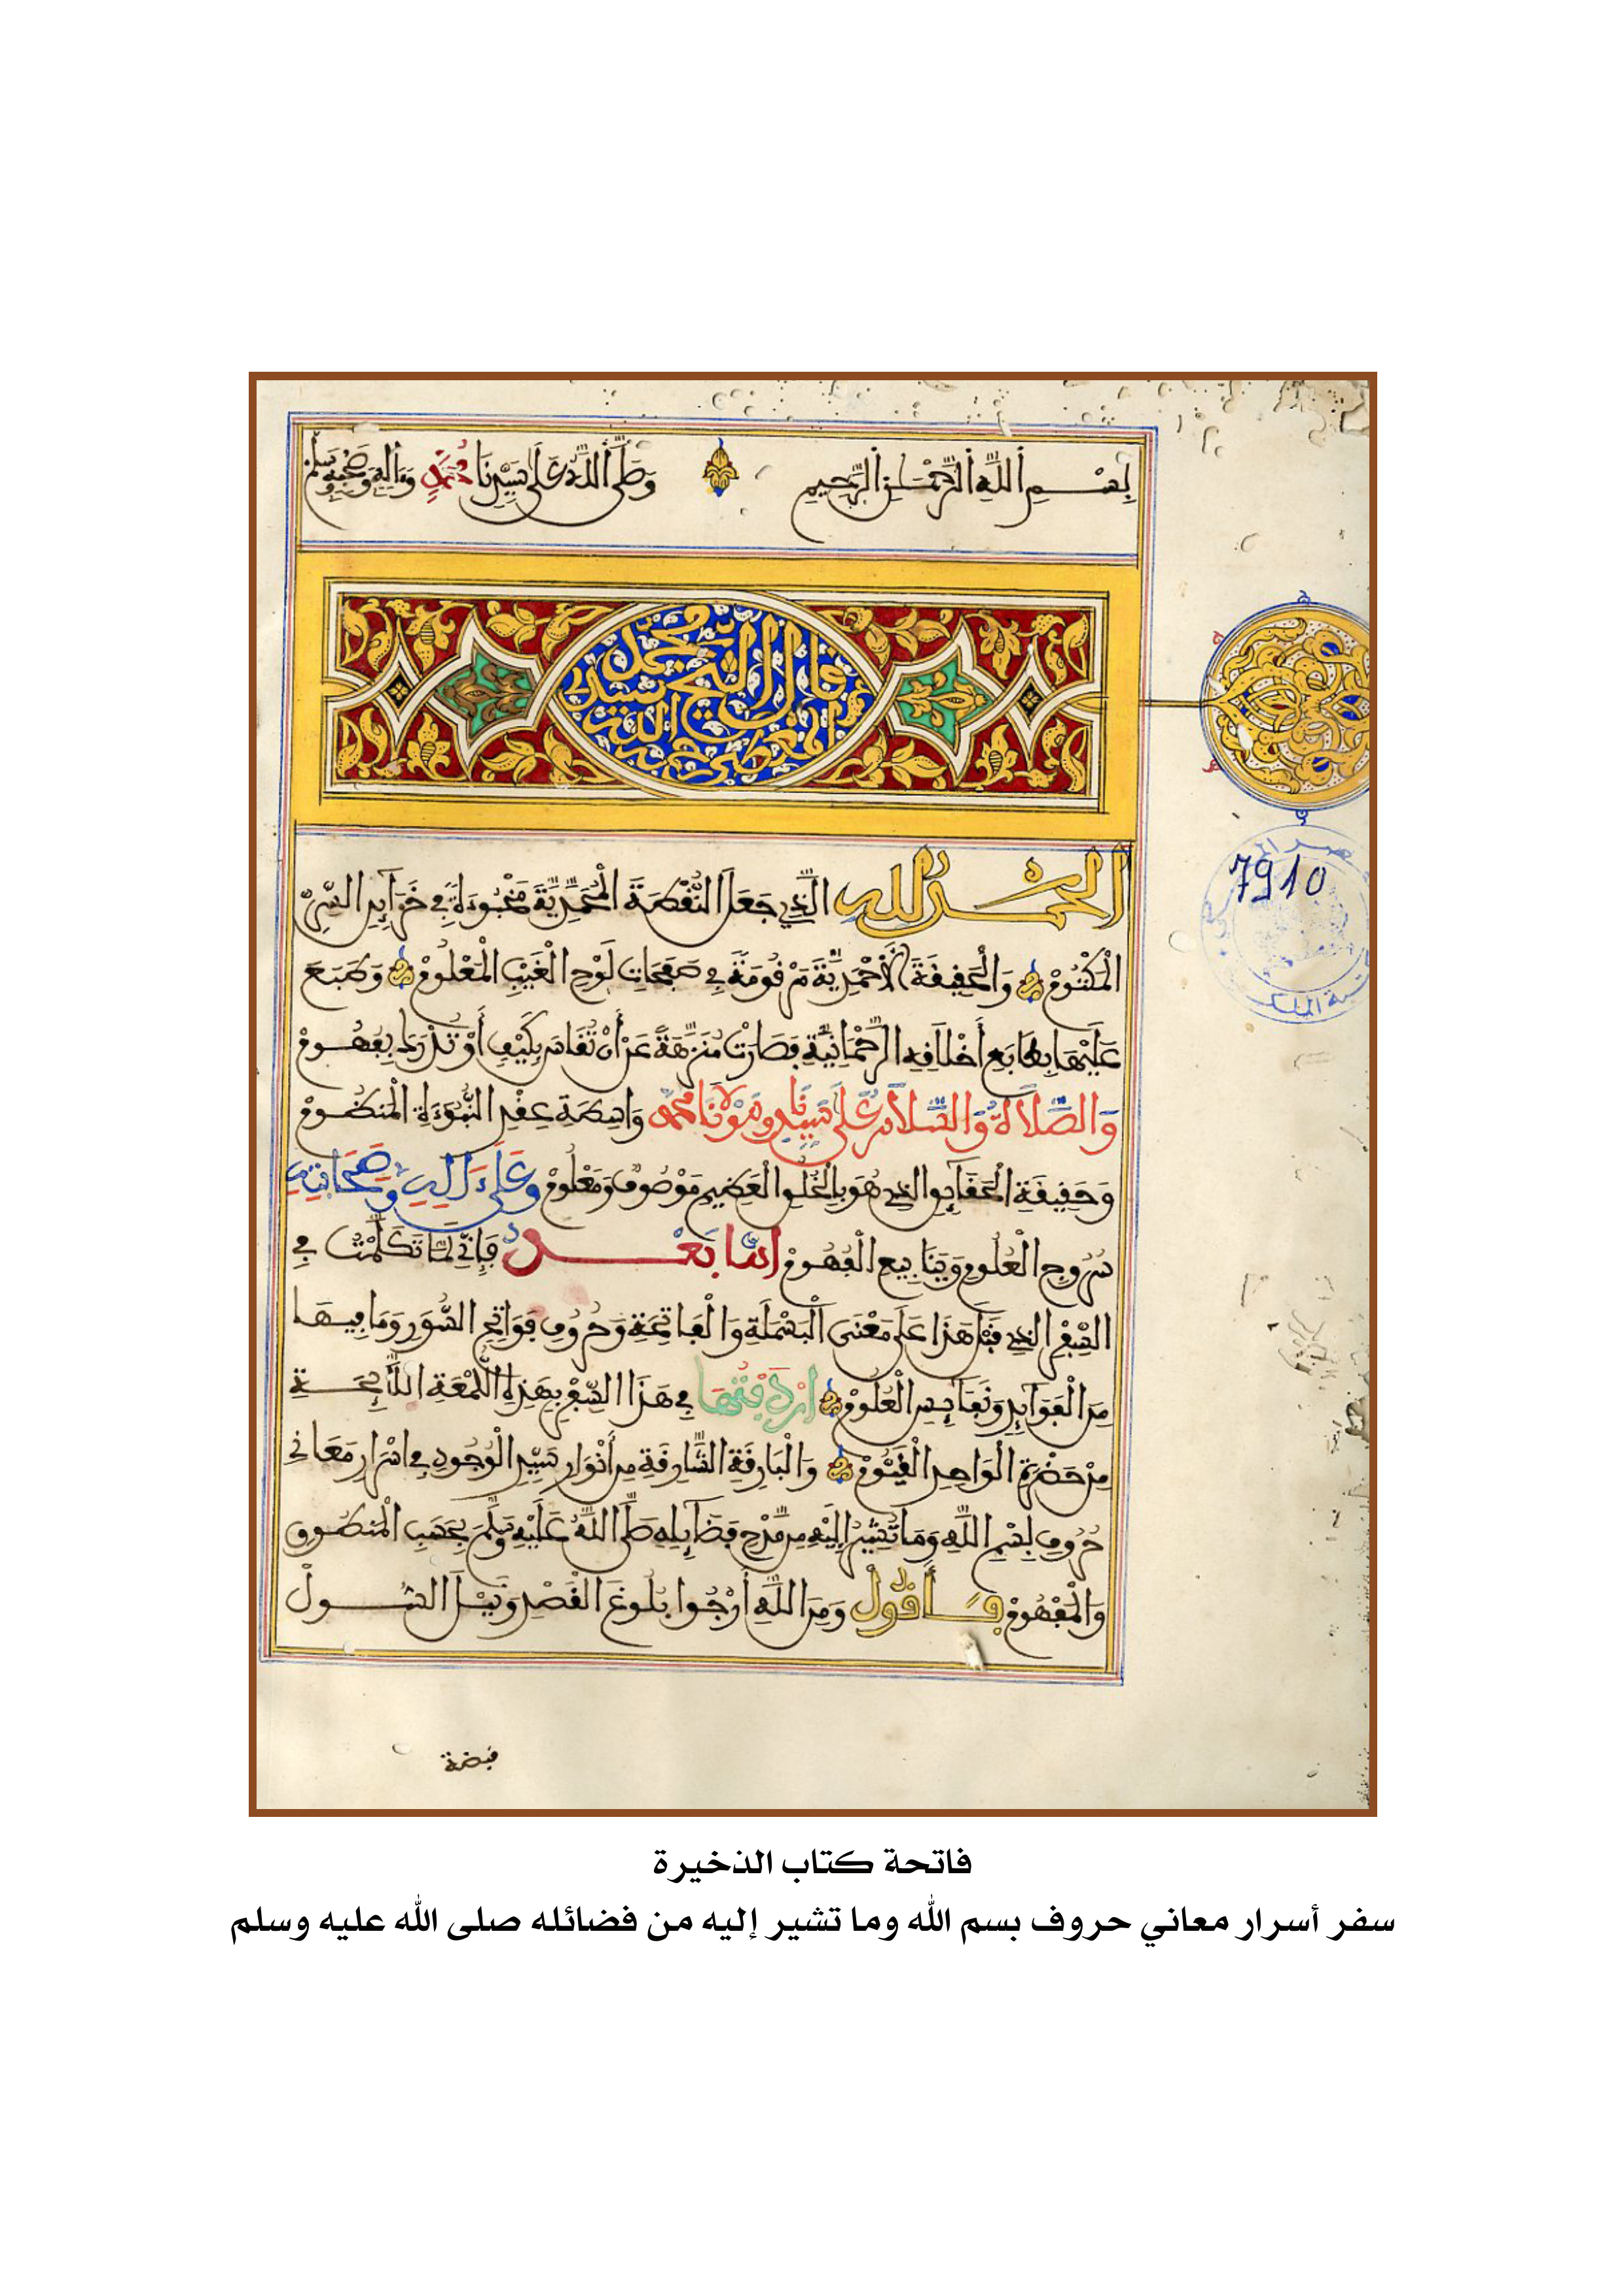 بِسْمِ اللَّهِ الرَّحْمَٰنِ الرَّحِيمِ وَصَلَّى اللَّهُ عَلَى سَيِّدِنَا مُحَمَّدٍ وَءَالِهِ وَصَحْبِهِ وَسَلَّمَ
قال الشيخ سيدي محمد المعطى رضي الله عنه
الحَمْدُ لِلَّهِ الَّذِي جَعَلَ النُّقْطَةَ الْمُحَمَّدِيَّةَ مَخْبُوءَةً فِي خَزَآئِنِ السِّرِّ
الْمَكْتُومْ وَالْحَقِيقَةَ الْأَحْمَدِيَّةَ مَرْقُومَةً فِي صَفَحَاتِ لَوْحِ الْغَيْبِ الْمَعْلُومْ وَطَبَعَ
عَلَيْهَا بِطَابَعِ أَخْلَاقِهِ الرَّحْمَانِيَّةِ فَصَارَتْ مُنَزَّهَةً عَنْ أَنْ تُقَاسَ بِكَيْفٍ أَوْ تُدْرَكَ بِفُهُومْ
وَالصَّلَاةُ وَالسَّلَامُ عَلَى سَيِّدِنَا وَمَوْلَانَا مُحَمَّدٍ وَاسِطَةِ عِقْدِ النُّبُوَّةِ الْمَنْظُومْ
وَحَقِيقَةِ الْحَقَآئِقِ الذِي هُوَ بِالْخُلُقِ الْعَظِيمِ مَوْصُوفٌ وَمَعْلُومْ وَعَلَى ءَالِهِ وَصَحَابَتِهِ
سُرُوجِ الْعُلُومِ وَيَنَابِيعِ الْفُهُومْ أَمَّا بَعْدُ فَإِنِّي لَمَّا تَكَلَّمْتُ فِي
السِّفْرِ الذِي قَبْلَ هَذَا عَلَى مَعْنَى الْبَسْمَلَةِ وَالْفَاتِحَةِ وَحُرُوفِ فَوَاتِحِ السُّوَرِ وَمَا فِيهَا
مِنَ الْفَوَآئِدِ وَنَفَآئِسِ الْعُلُومْ أَرْدَفْتُهَا فِي هَذَا السِّفْرِ بِهَذِهِ اللُّمْعَةِ اللَّآئِحَةِ
مِنْ حَضْرَةِ الْوَاحِدِ الْقَيُّومْ وَالْبَارِقَةِ الشَّارِقَةِ مِنْ أَنْوَارِ سَيِّدِ الْوُجُودِ فِي اسْرَارِ مَعَانِي
حُرُوفِ بِسْمِ اللَّهِ وَمَا تُشِيرُ إِلَيْهِ مِنْ مَدْحِ فَضَآئِلِهِ صَلَّى اللَّهُ عَلَيْهِ وَسَلَّمَ بِحَسَبِ الْمَنْطُوقِ
وَالْمَفْهُومْ فَأَقُولُ وَمِنَ اللَّهِ أَرْجُوا بُلُوغَ الْقَصْدِ وَنَيْلَ السُّولْ
7910
قبضة
فاتحة كتاب الذخيرة
سفر أسرار معاني حروف بسم الله وما تشير إليه من فضائله صلى الله عليه وسلم